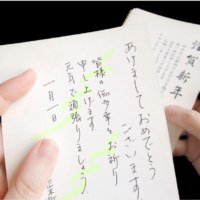 あけましておめでとう
ございます
皆様の御多幸をお祈り
申し上げます
元気で頑張りましょう
一月一日
謹賀新年